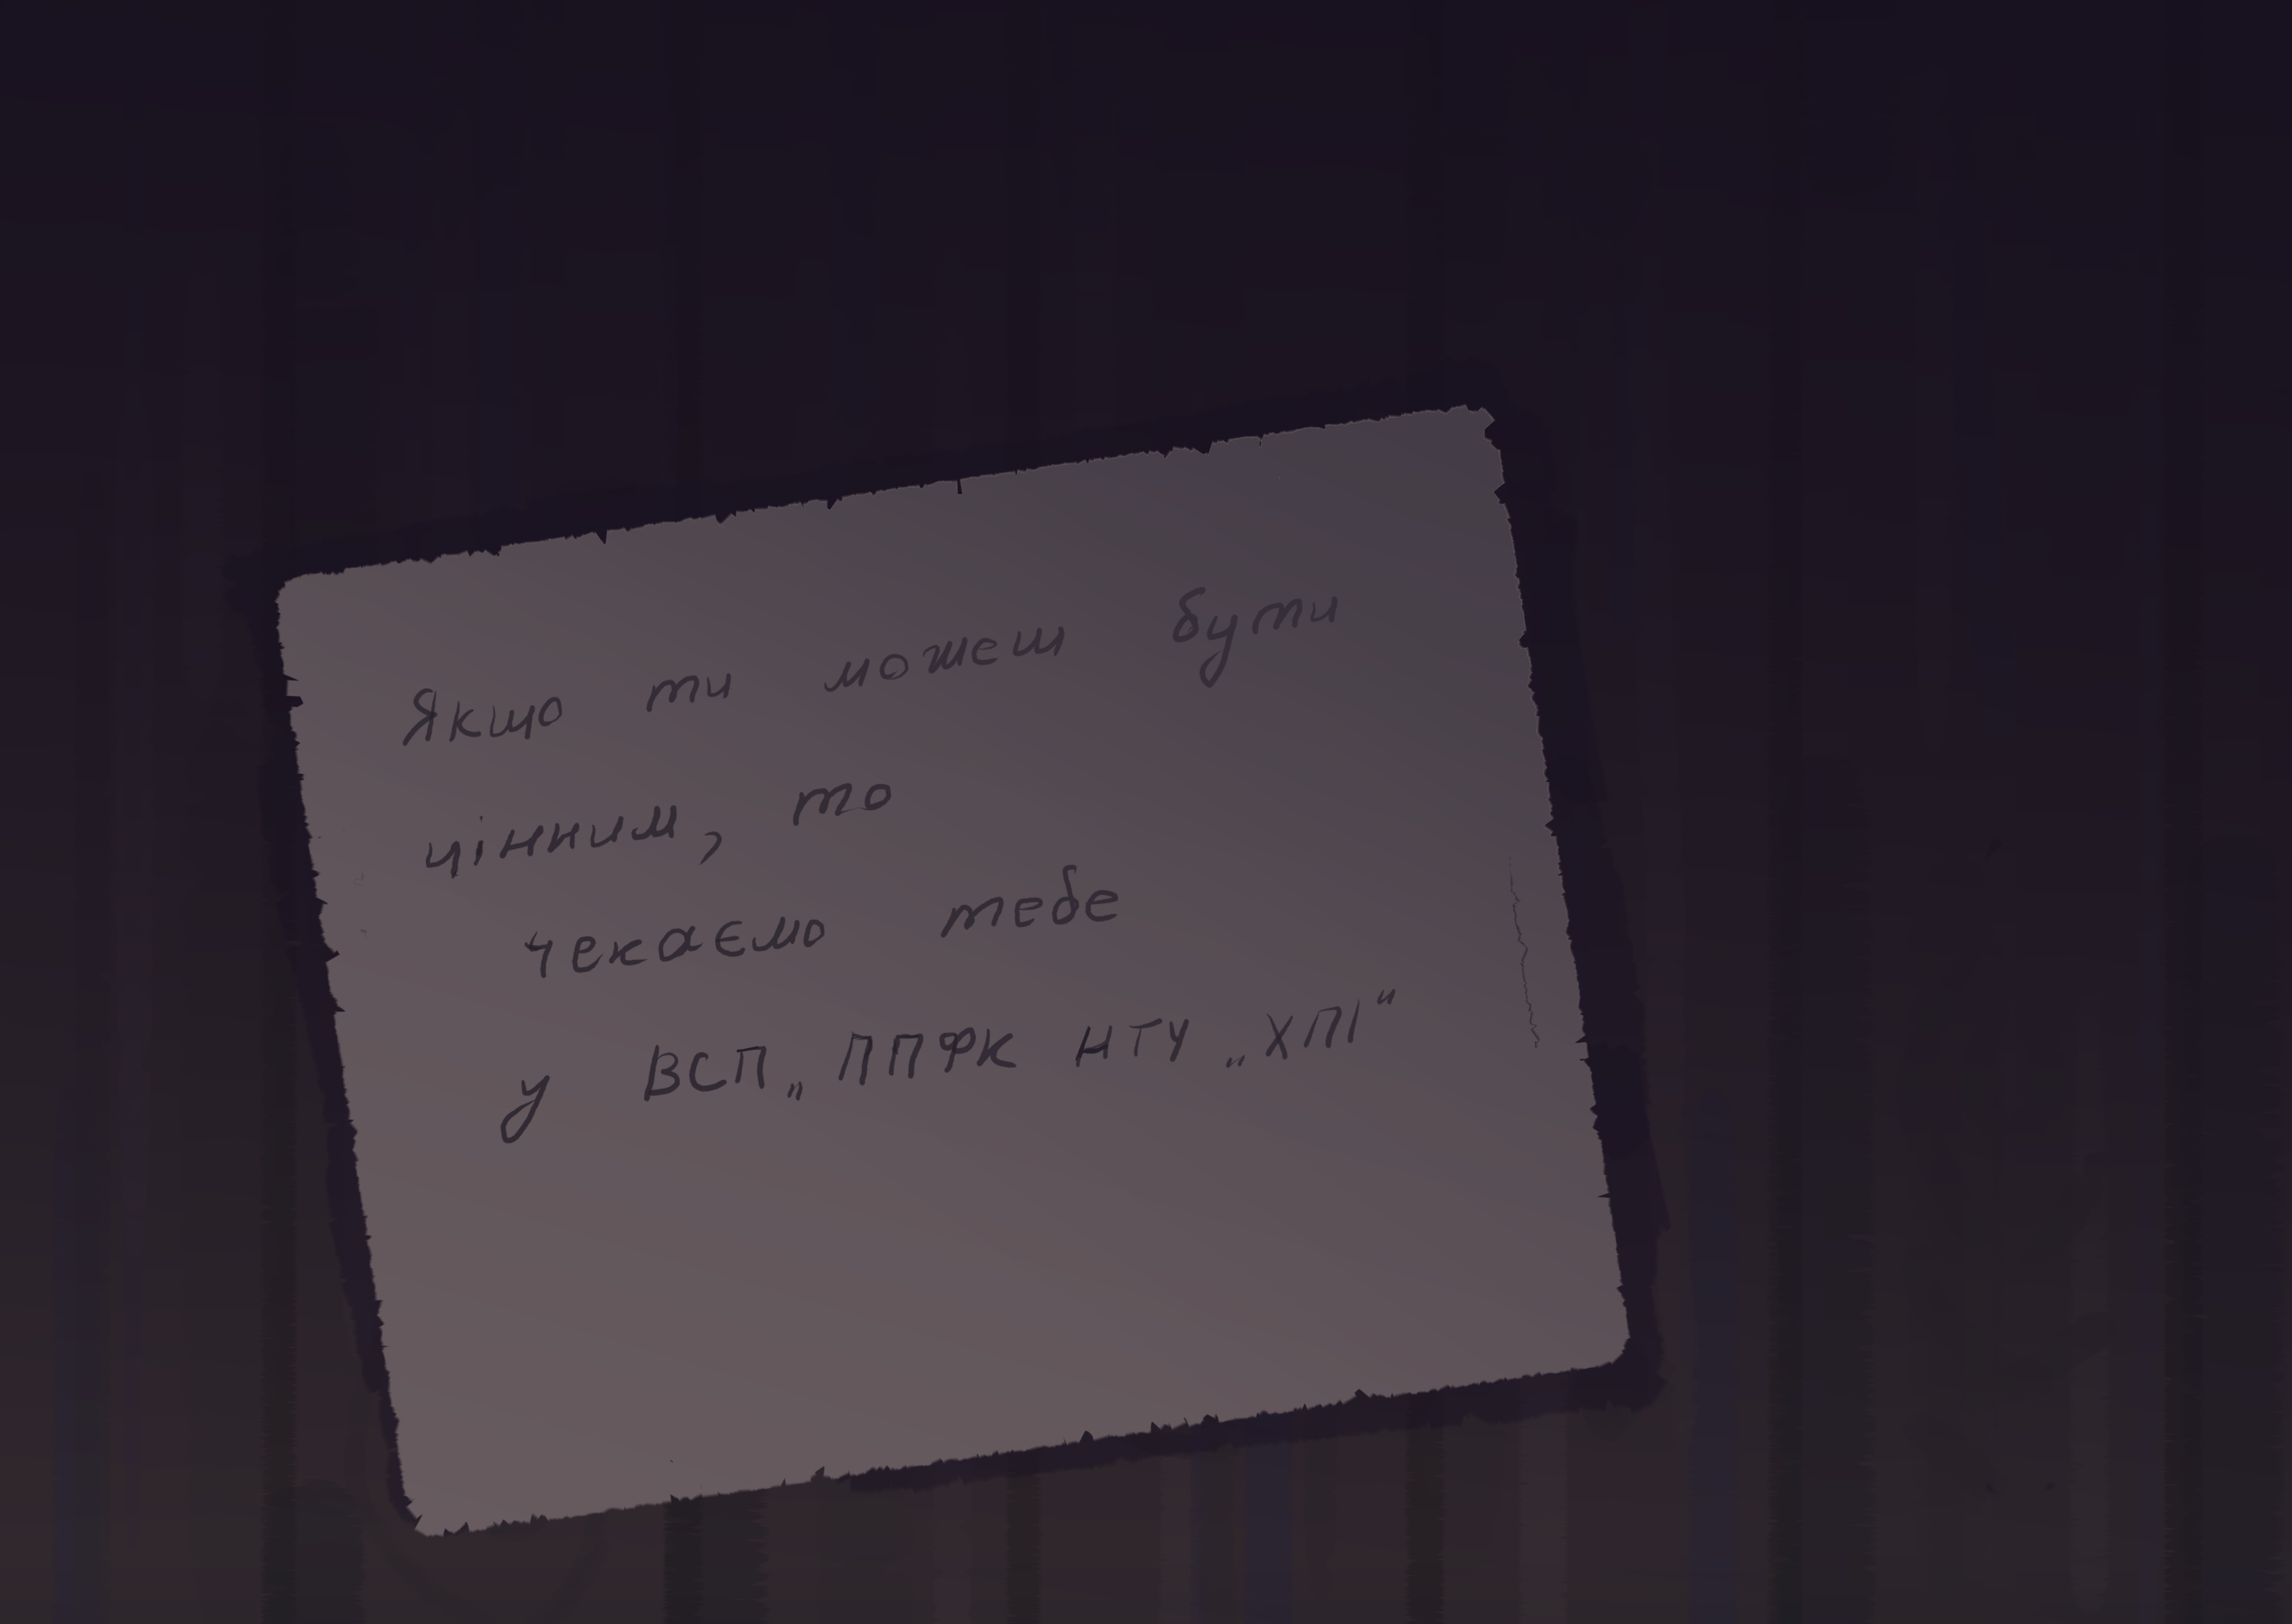 Якщо ти можеш бути
цінним, то
чекаємо тебе
у ВСП „ППФК НТУ „ХПІ“